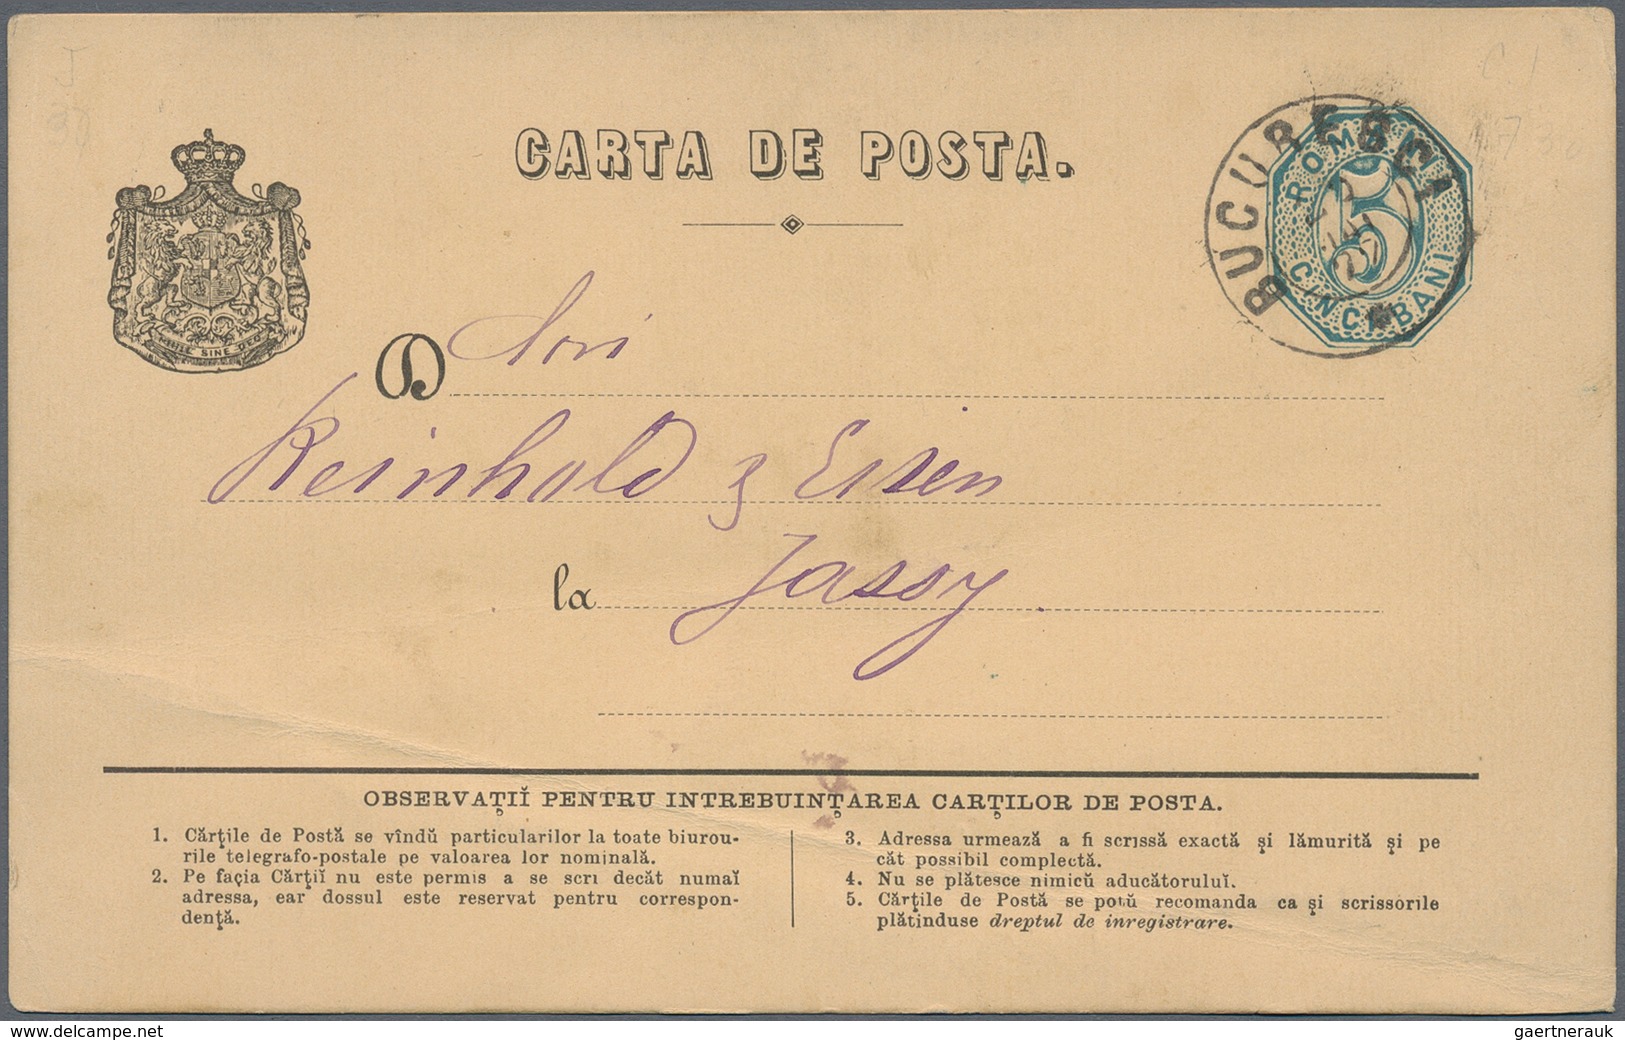 CARTA DE POSTA.
BUCURESCI
ROMANIA
5
CINCI BANI
NIHIL SINE DEO
D
Reinhold & Eisen
la Jassy.
OBSERVAȚIĬ PENTRU INTREBUINȚAREA CARȚILOR DE POSTA.
1. Cărțile de Postă se vîndŭ particularilor la toate biurou-
rile telegrafo-postale pe valoarea lor nominală.
2. Pe facia Cărțiĭ nu este permis a se scri decăt numaĭ
adressa, ear dossul este reservat pentru correspon-
dență.
3. Adressa urmează a fi scrissă exactă și lămurită și pe
căt possibil complectă.
4. Nu se plătesce nimicŭ aducătoruluĭ.
5. Cărțile de Postă se potŭ recomanda ca și scrissorile
plătinduse dreptul de inregistrare.
www.delcampe.net
gaertnerauk